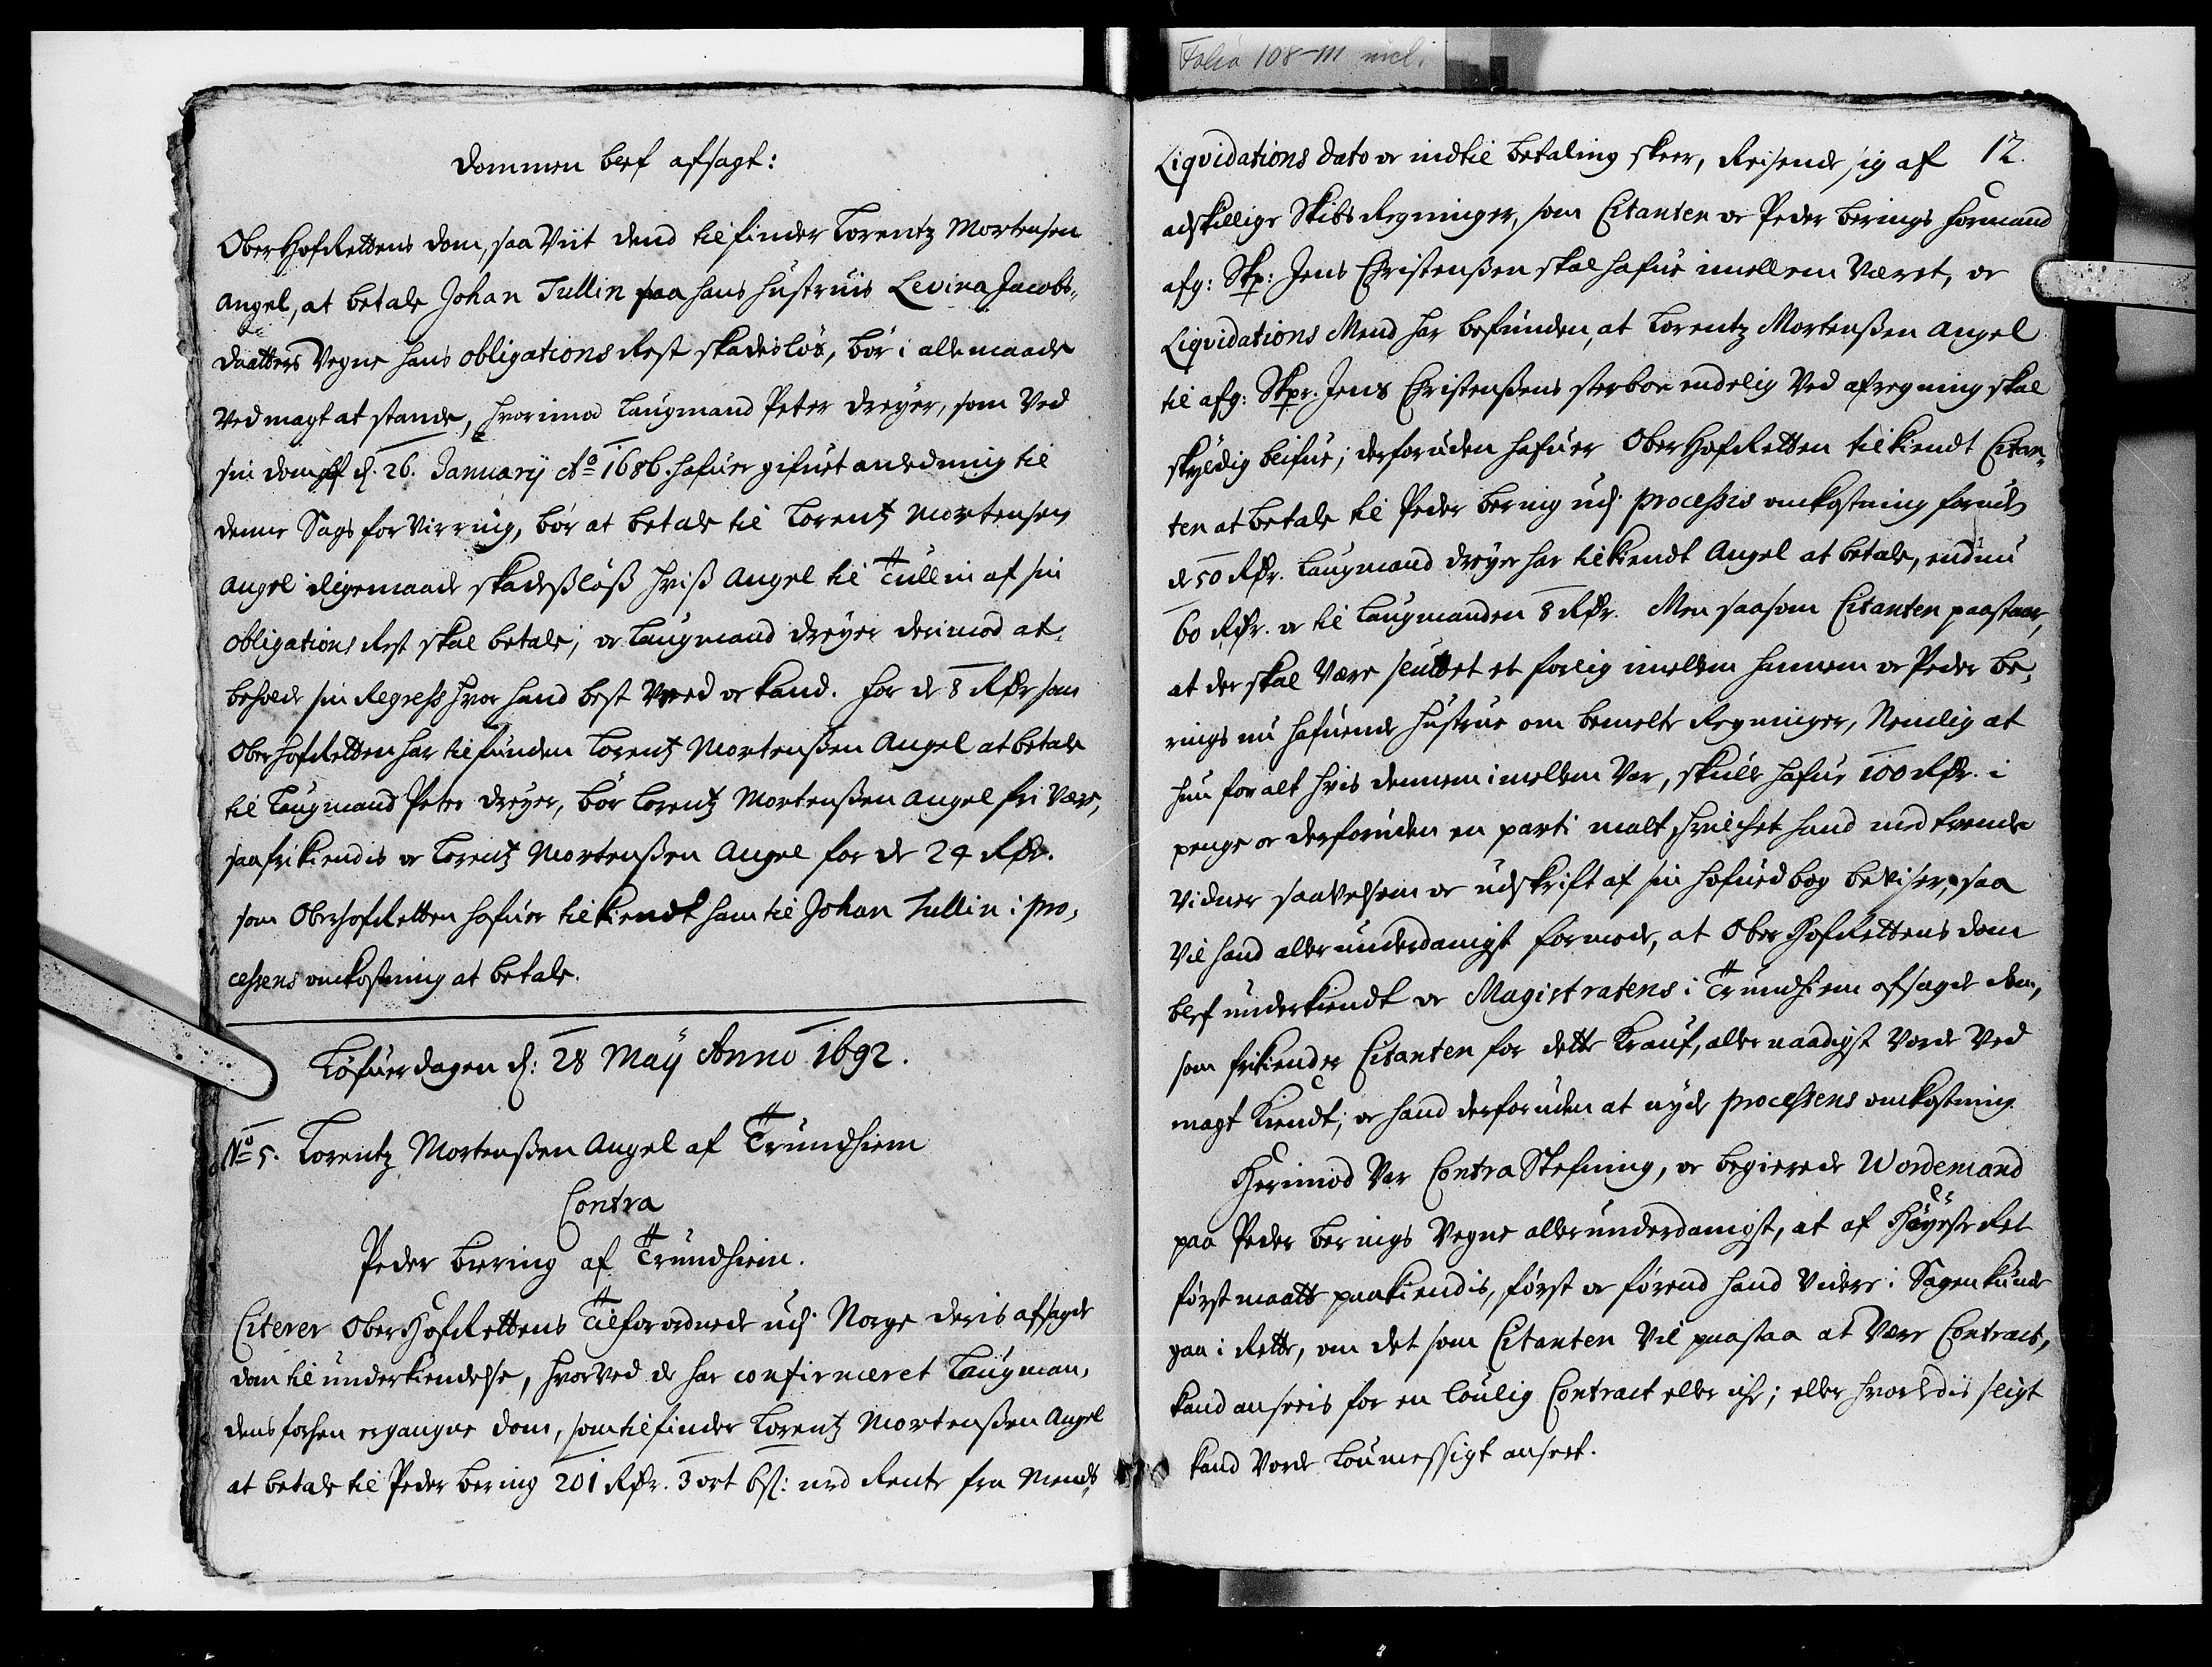 Folio 108-111 incl.
Dommen blef afsagt:
OberHofRettens Dom, saa Viit dend tilfinder Lorentz Mortensen
Angel, at betale Johan Tullin paa hans hustruis Levina Jacobs-
daatters Vegne hans obligations Rest skadesløs, bør i alle maade
Ved magt at stande, hvorimod Laugmand Peter Dreyer, som Ved
sin dom af d. 26. Januarij Ao 1686. hafuer gifuet anledning til
denne Sags forVirring, bør at betale til Lorentz Mortensen
Angel i ligemaade skadesløß hviß Angel til Tullin af sin
obligations Rest skal betale; oc Laugmand Dreyer derimod at
beholde sin Regress hvor hand best Veed oc kand. For de 8 Rdr som
OberhofRetten har tilfunden Lorentz Mortenßen Angel at betale
til Laugmand Peter Dreyer, bør Lorentz Mortenßen Angel fri Være,
saa frikiendis oc Lorentz Mortenßen Angel for de 24 Rdr.
som OberhofRetten hafuer tilkiendt ham til Johan Tullin i pro-
cessens omkostning at betale.
Løfuerdagen d: 28 Maij Anno 1692.
No 5. Lorentz Mortenßen Angel af Trundhiem
Contra
Peder Biering af Trundhiem.
Citerer OberHofRettens Tilforordnede udj Norge deris afsagde
dom til underkiendelse, hvorVed de har confirmeret Laugman-
dens forhen ergangne dom, som tilfinder Lorentz Mortenßen Angel
at betale til Peder Bering 201 Rdr. 3 ort 6 s: med Rente fra Mends
12.
Liqvidations dato oc indtil betaling skeer, Reisende sig af
adskillige Skibs Regninger, som Citanten oc Peder Berings formand
afg: Skp: Jens Christenßen skal hafue imellem Været, oc
Liqvidations Mend har befunden, at Lorentz Mortenßen Angel
til afg: Skpr. Jens Christenßens sterboe endelig Ved afregning skal
skyldig blifue; derforuden hafuer OberHofRetten tilkiendt Citan-
ten at betale til Peder Bering udj processis omkostning foruden
de 50 Rdr. Laugmand Dreyer har tilkiendt Angel at betale, endnu
60 Rdr. oc til Laugmanden 8 Rdr. Men saasom Citanten paastaar,
at der skal Være sluttet et forlig imellem hannem oc Peder Be-
rings nu hafuende hustrue om bemelte Regninger, Nemlig at
hun for alt hvis dennem imellem Var, skulle hafue 100 Rdr. i
penge oc derforuden en parti malt, hvilchet hand med tvende
Vidner saaVelsom oc udskrift af sin hofuedbog beviser, saa
Vil hand allerunderdanigst formode, at OberHofRettens dom
blef underkiendt oc Magistratens i Trundhiem afsagde dom,
som frikiender Citanten for dette Krauf, allernaadigst Vorde Ved
magt Kiendt, oc hand derforuden at nyde processens omkostning.
Herimod Var Contra Stefning, oc begierede Wordemand
paa Peder Berings Vegne allerunderdanigst, at af Høyeste Ret
først maatte paakiendis, først oc førend hand Videre i Sagen kunde
gaa i Rette, om det som Citanten Vil paastaa at Være Contract,
kand ansees for en loulig Contract eller ichr; eller hvorledis sligt
kand Vorde Loumessigt anseet.